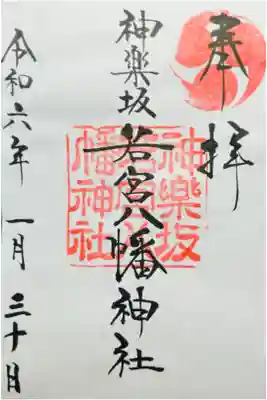 奉拝
神樂坂
若宮八幡神社
神樂坂
若宮八
幡神社
令和六年 一月 三十日